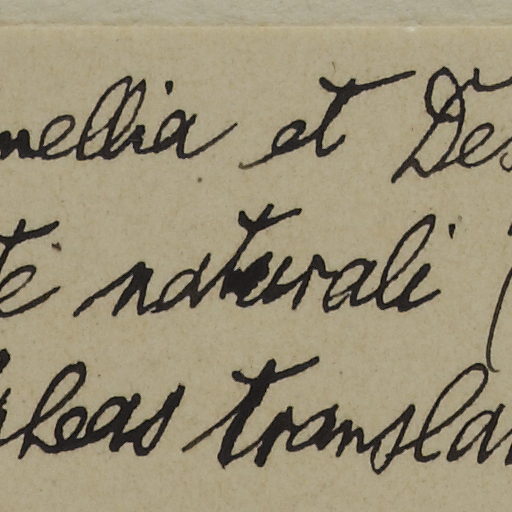 mellia et Des
te naturali (
heas transla